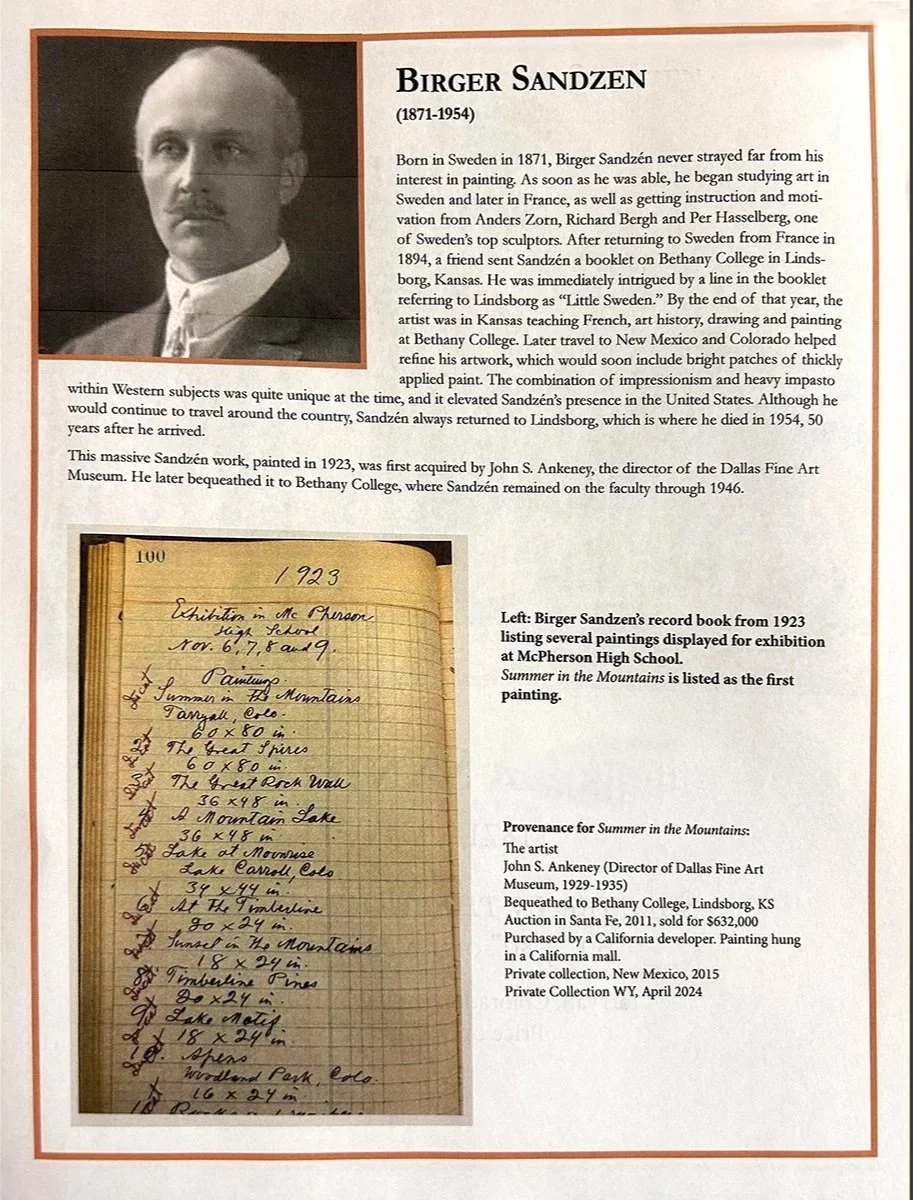 BIRGER SANDZEN
(1871-1954)
Born in Sweden in 1871, Birger Sandzén never strayed far from his
interest in painting. As soon as he was able, he began studying art in
Sweden and later in France, as well as getting instruction and moti-
vation from Anders Zorn, Richard Bergh and Per Hasselberg, one
of Sweden's top sculptors. After returning to Sweden from France in
1894, a friend sent Sandzén a booklet on Bethany College in Linds-
borg, Kansas. He was immediately intrigued by a line in the booklet
referring to Lindsborg as “Little Sweden.” By the end of that year, the
artist was in Kansas teaching French, art history, drawing and painting
at Bethany College. Later travel to New Mexico and Colorado helped
refine his artwork, which would soon include bright patches of thickly
applied paint. The combination of impressionism and heavy impasto
within Western subjects was quite unique at the time, and it elevated Sandzén's presence in the United States. Although he
would continue to travel around the country, Sandzén always returned to Lindsborg, which is where he died in 1954, 50
years after he arrived.
This massive Sandzén work, painted in 1923, was first acquired by John S. Ankeney, the director of the Dallas Fine Art
Museum. He later bequeathed it to Bethany College, where Sandzén remained on the faculty through 1946.
100
1923
Exhibition in Mc Pherson
High School
Nov. 6, 7, 8 and 9.
Paintings.
Summer in the Mountains
Tarryall, Colo.
60 x 80 in.
2. The Great Spires
60 x 80 in.
3. The Great Rock Wall
36 x 48 in.
4. A Mountain Lake
36 x 48 in.
5. Lake at Moonrise
Lake Carroll, Colo
34 x 44 in.
6. At the Timberline
20 x 24 in.
7. Sunset in the Mountains
18 x 24 in.
8. Timberline Pines
20 x 24 in.
9. Lake Motif
18 x 24 in.
10. Aspens
Woodland Park, Colo.
16 x 24 in
Left: Birger Sandzen's record book from 1923
listing several paintings displayed for exhibition
at McPherson High School.
Summer in the Mountains is listed as the first
painting.
Provenance for Summer in the Mountains:
The artist
John S. Ankeney (Director of Dallas Fine Art
Museum, 1929-1935)
Bequeathed to Bethany College, Lindsborg, KS
Auction in Santa Fe, 2011, sold for $632,000
Purchased by a California developer. Painting hung
in a California mall.
Private collection, New Mexico, 2015
Private Collection WY, April 2024